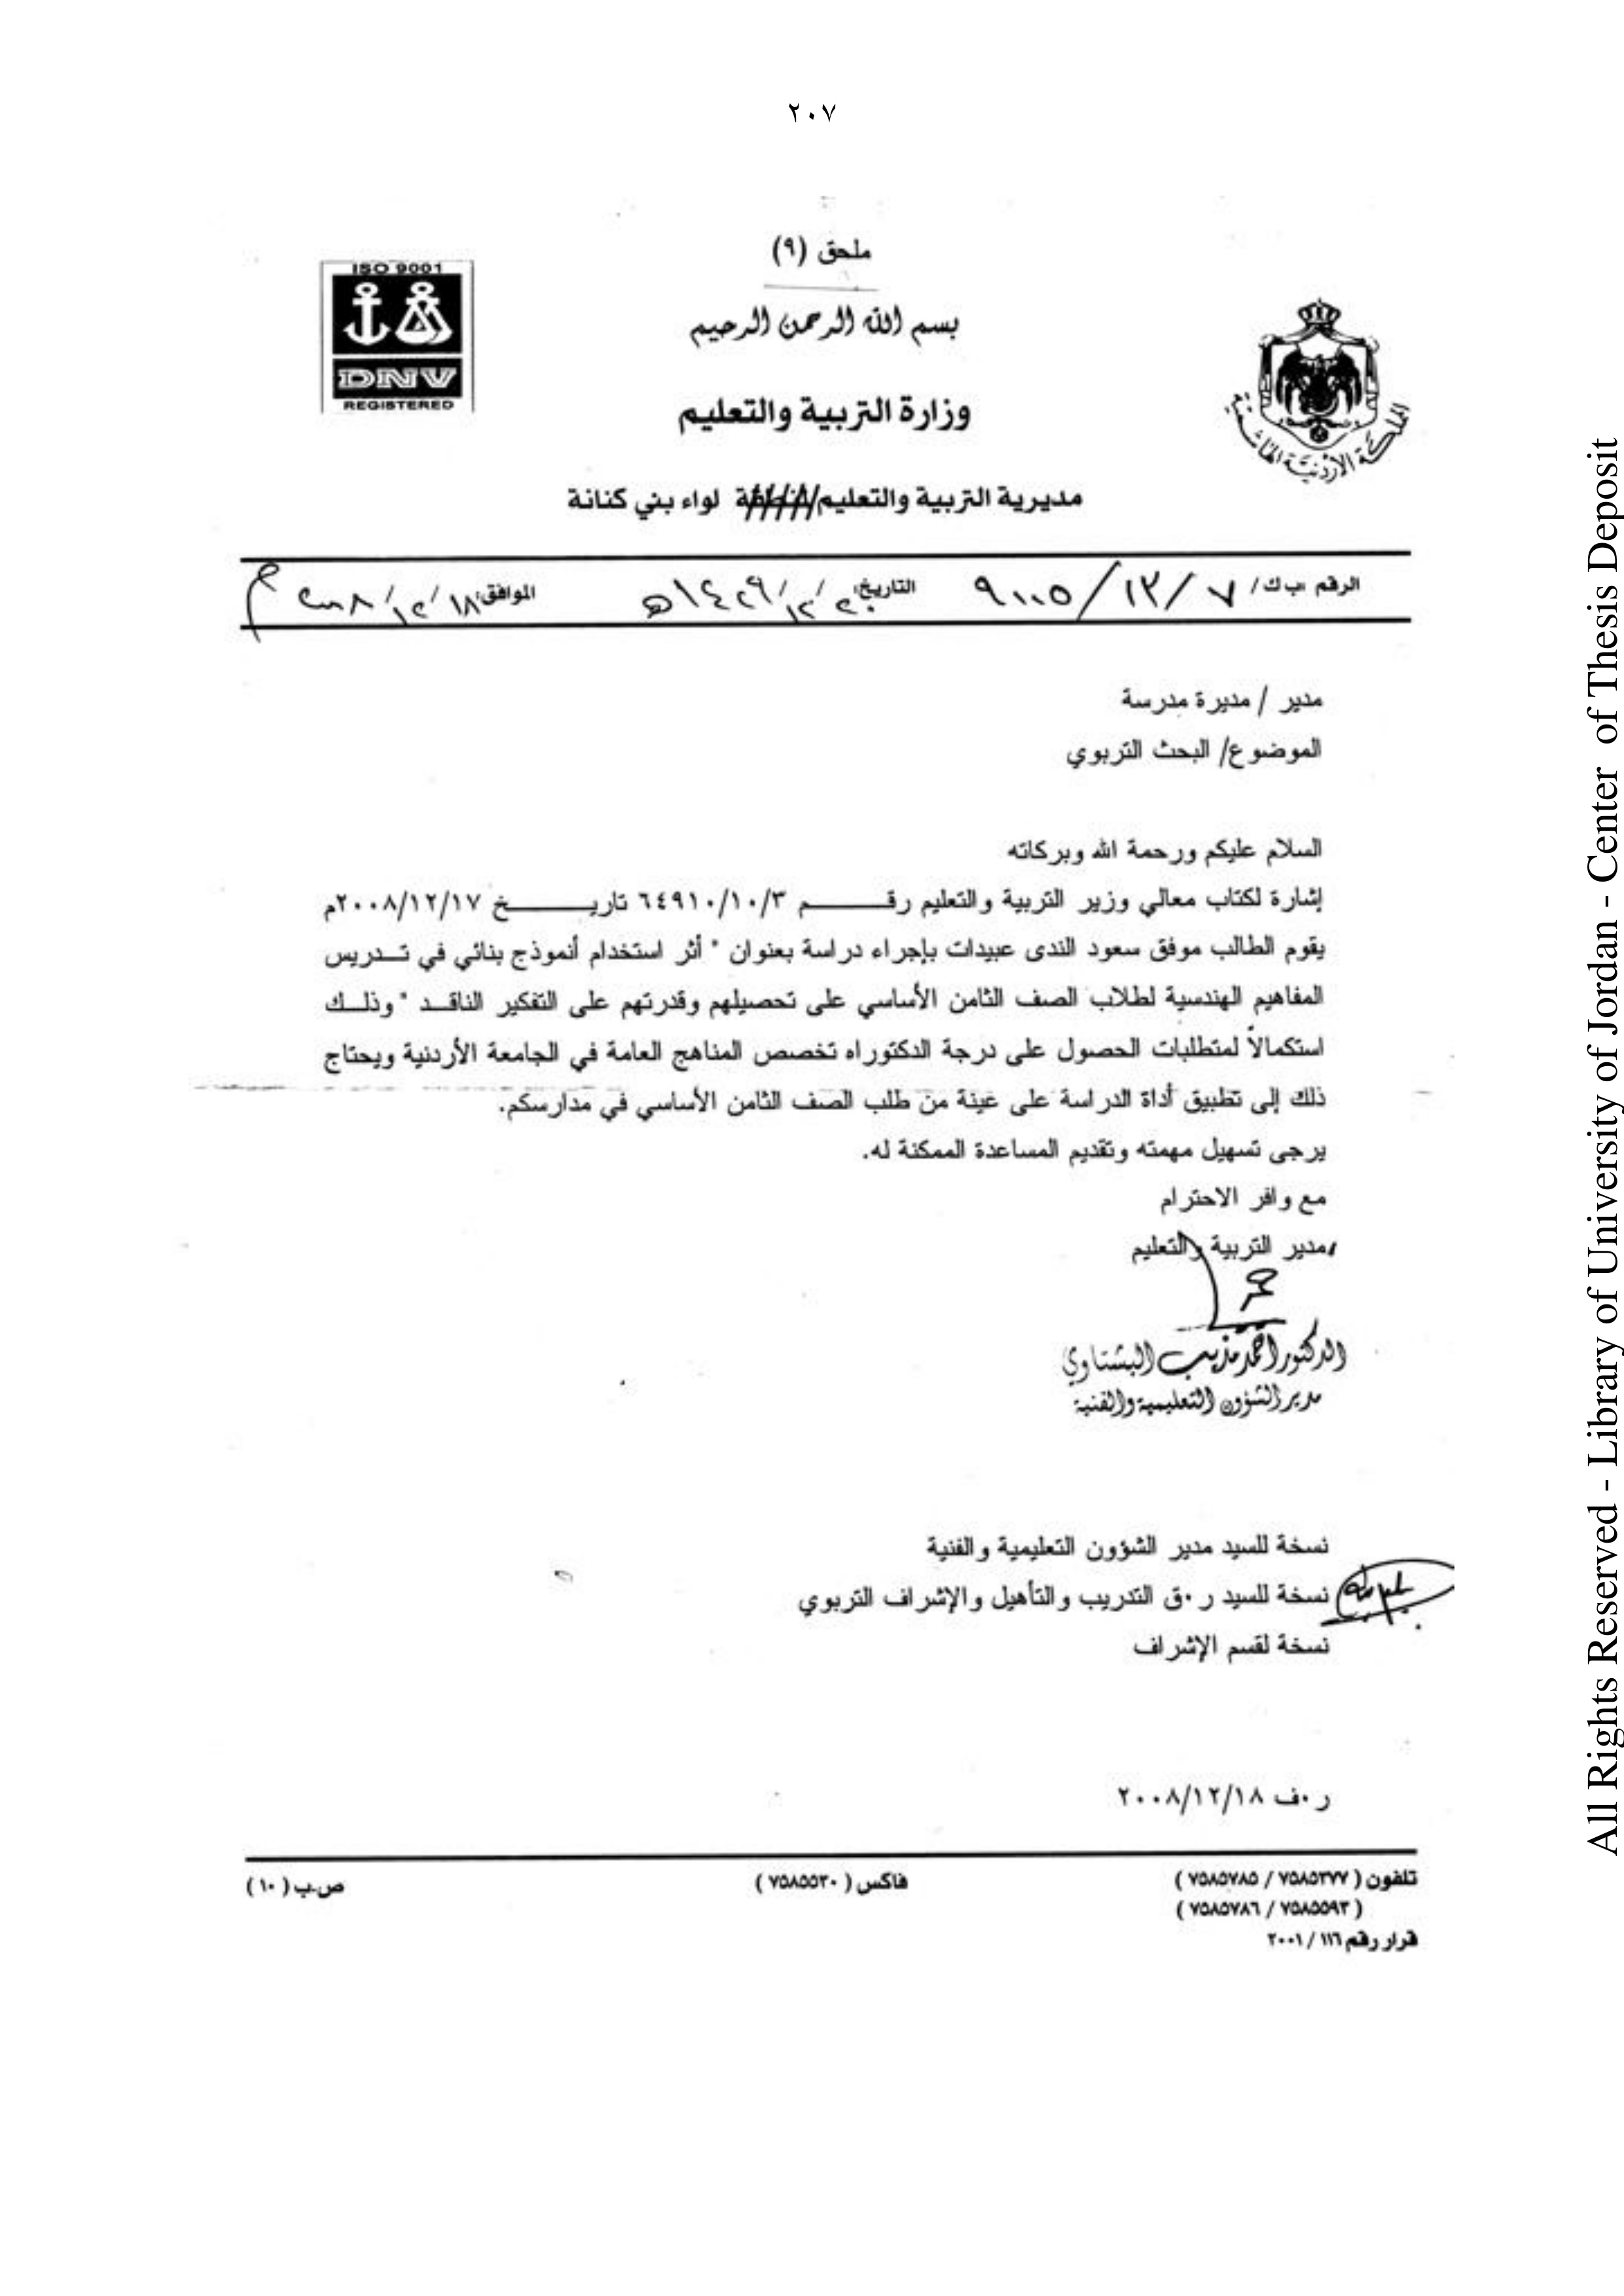 ٢٠٧
ملحق (٩)
ISO 9001
DNV
REGISTERED
بسم الله الرحمن الرحيم
وزارة التربية والتعليم
المملكة الأردنية الهاشمية
مديرية التربية والتعليم لواء بني كنانة
الرقم ب ك/ ٧ / ١٣ / ٩١٠٥ التاريخ ٢٠/١٢/١٤٢٩هـ الموافق ١٨/١٢/٢٠٠٨ م
مدير / مديرة مدرسة
الموضوع/ البحث التربوي
السلام عليكم ورحمة الله وبركاته
إشارة لكتاب معالي وزير التربية والتعليم رقـــــم ٦٤٩١٠/١٠/٣ تاريـــــخ ٢٠٠٨/١٢/١٧م
يقوم الطالب موفق سعود الندى عبيدات بإجراء دراسة بعنوان " أثر استخدام أنموذج بنائي في تـــدريس
المفاهيم الهندسية لطلاب الصف الثامن الأساسي على تحصيلهم وقدرتهم على التفكير الناقــد " وذلــك
استكمالاً لمتطلبات الحصول على درجة الدكتوراه تخصص المناهج العامة في الجامعة الأردنية ويحتاج
ذلك إلى تطبيق أداة الدراسة على عينة من طلب الصف الثامن الأساسي في مدارسكم.
يرجى تسهيل مهمته وتقديم المساعدة الممكنة له.
مع وافر الاحترام
مدير التربية والتعليم
الدكتور أحمد مذيب البشتاوي
مدير الشؤون التعليمية والفنية
نسخة للسيد مدير الشؤون التعليمية والفنية
نسخة للسيد ر.ق التدريب والتأهيل والإشراف التربوي
نسخة لقسم الإشراف
ر.ف ٢٠٠٨/١٢/١٨
تلفون ( ٧٥٨٥٢٧٧ / ٧٥٨٥٧٨٥ ) فاكس ( ٧٥٨٥٥٣٠ ) ص.ب ( ١٠ )
( ٧٥٨٥٥٩٣ / ٧٥٨٥٧٨٦ )
قرار رقم ١١٦ / ٢٠٠١
All Rights Reserved - Library of University of Jordan - Center of Thesis Deposit